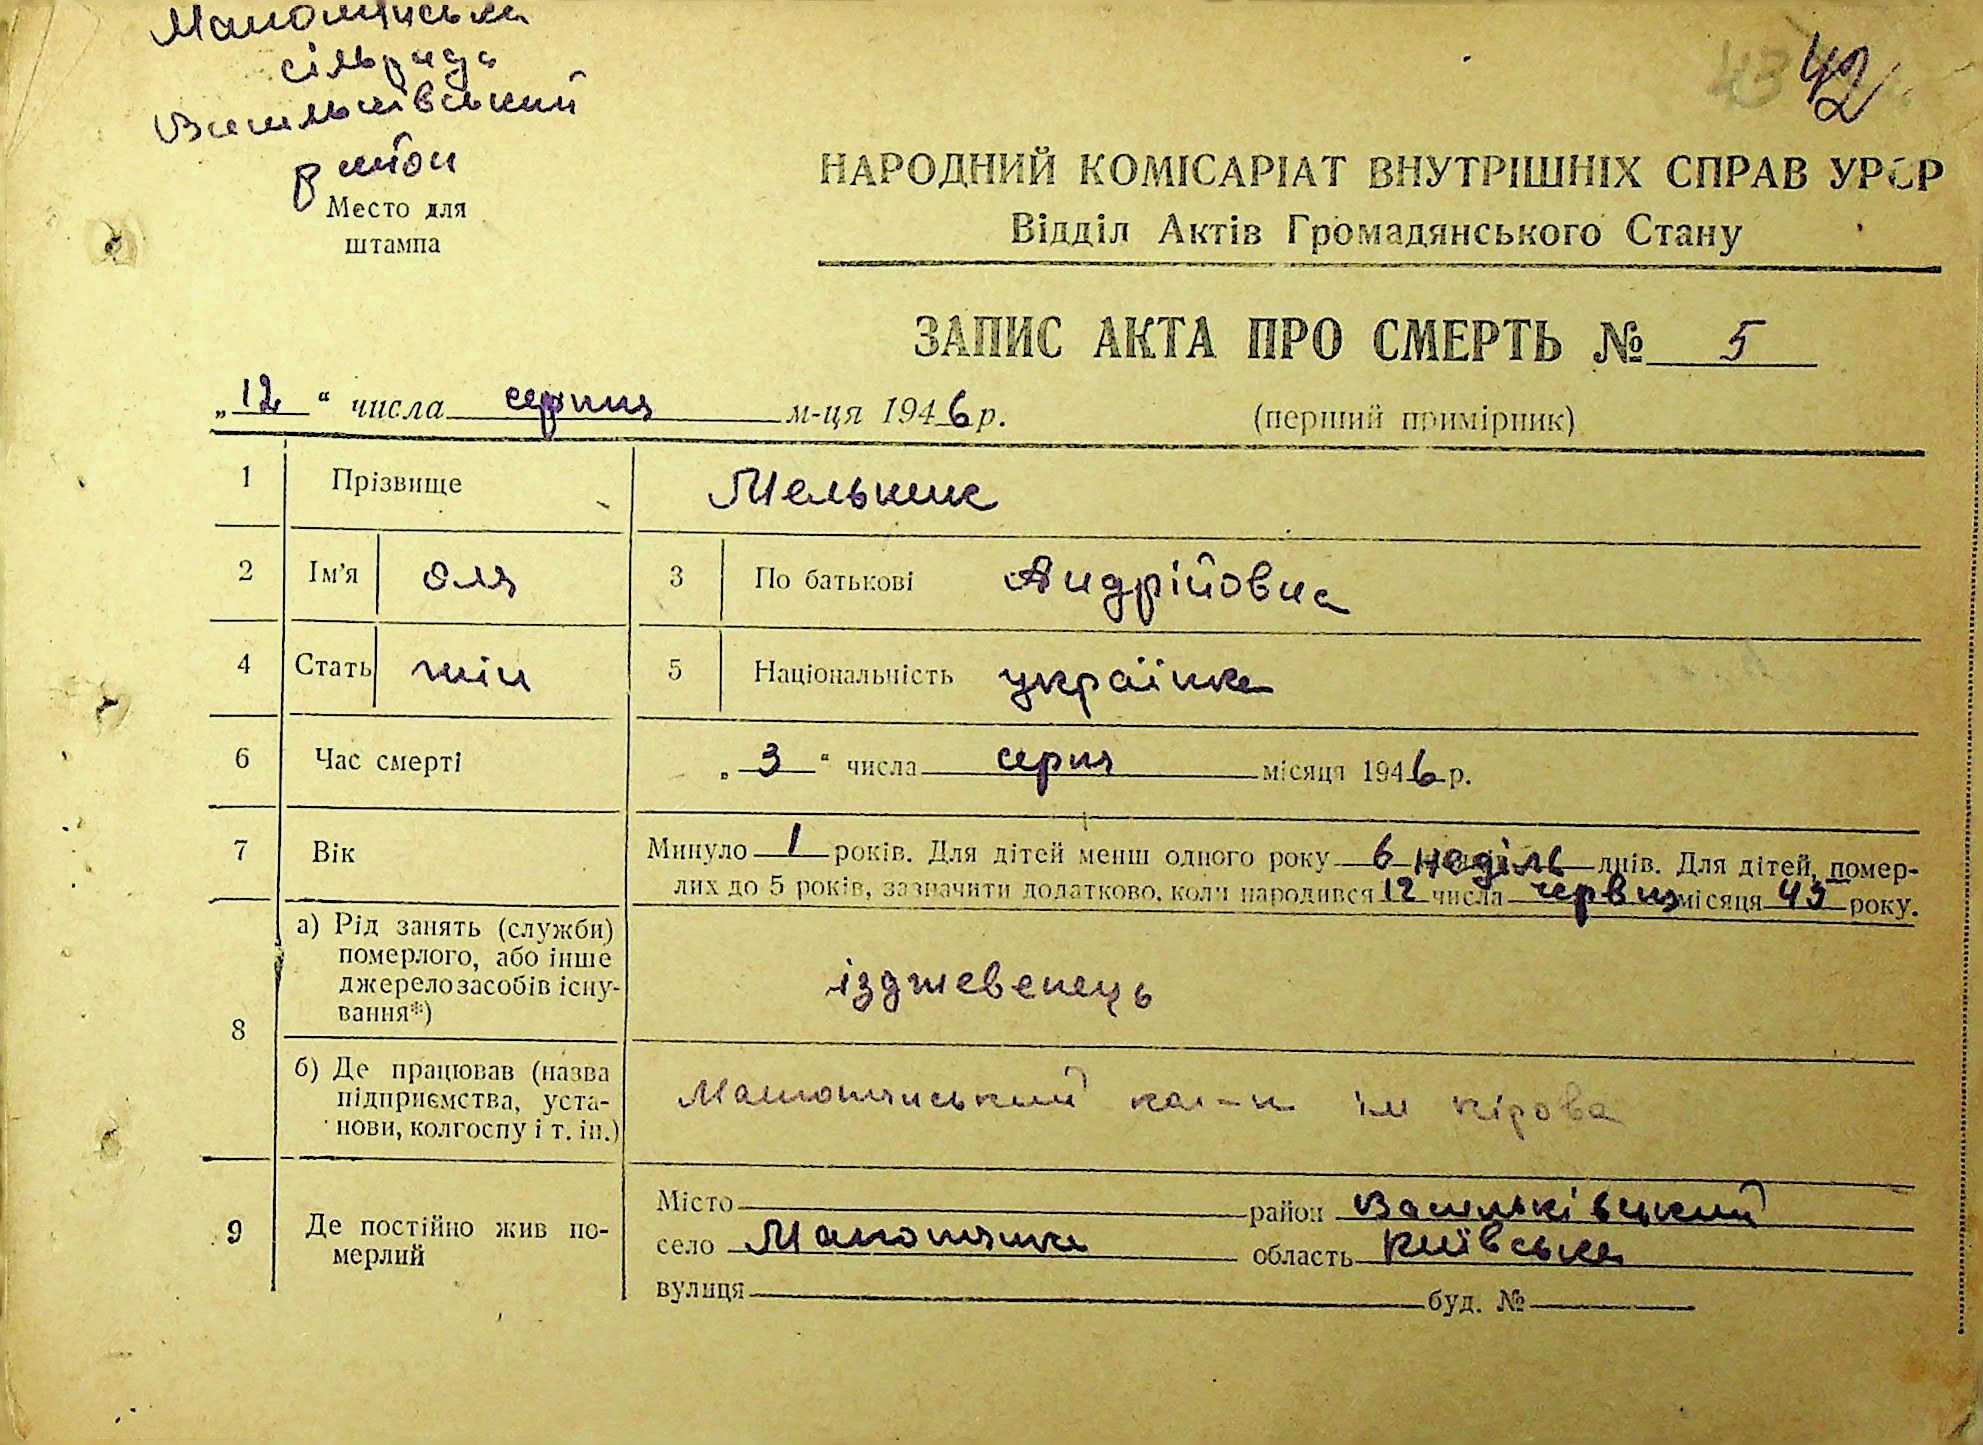 сільрада
Васильківський
район
Место для
штампа
43 42
НАРОДНИЙ КОМІСАРІАТ ВНУТРІШНІХ СПРАВ УРСР
Відділ Актів Громадянського Стану
ЗАПИС АКТА ПРО СМЕРТЬ № 5
„12“ числа серпня м-ця 1946 р. (перший примірник)
1 Прізвище Мельник
2 Ім'я Оля 3 По батькові Андрійовна
4 Стать жін 5 Національність українка
6 Час смерті „3“ числа серпня місяця 1946 р.
7 Вік Минуло 1 років. Для дітей менш одного року 6 неділь днів. Для дітей, помер-
лих до 5 років, зазначити додатково, коли народився 12 числа червня місяця 45 року.
8 а) Рід занять (служби)
померлого, або інше
джерело засобів існу-
вання*) ізджевенець
б) Де працював (назва
підприємства, уста-
нови, колгоспу і т. ін.) кол-п ім Кірова
9 Де постійно жив по-
мерлий
Місто район Васильківський
село область Київська
вулиця буд. №